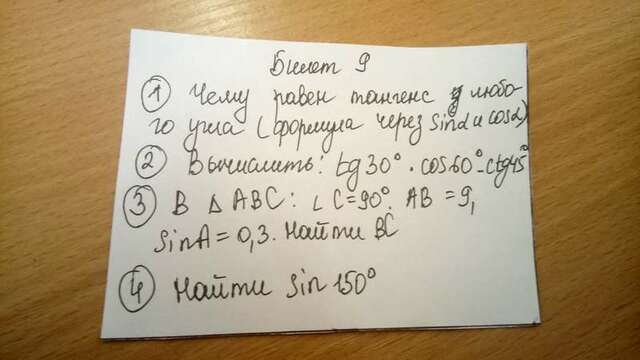 Билет 9
① Чему равен тангенс у любо-
го угла (формула через sinα и cosα)
② Вычислить: tg30° · cos60° - ctg45°
③ В Δ ABC: ∠ C=90°. AB = 9,
sinA = 0,3. Найти BC
④ Найти sin 150°